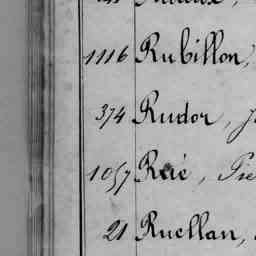 1116 Rubillon,
374 Rudor, J
1057 Rué, Pie
21 Ruellan,